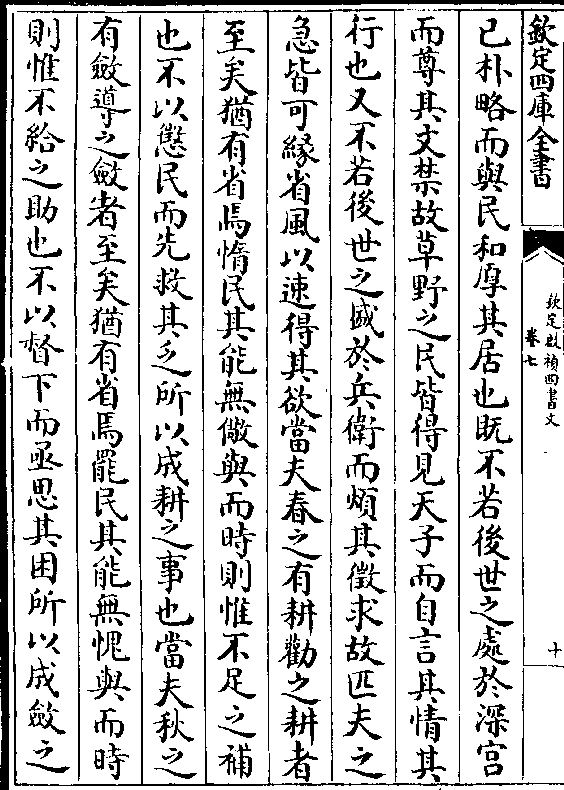 欽定四庫全書
欽定啟禎四書文
卷七
十
已朴略而與民和厚其居也既不若後世之處於深宫
而尊其文禁故草野之民皆得見天子而自言其情其
行也又不若後世之盛於兵衛而煩其徵求故匹夫之
急皆可緣省風以速得其欲當夫春之有耕勸之耕者
至矣猶有省焉惰民其能無儆與而時則惟不足之補
也不以懲民而先救其乏所以成耕之事也當夫秋之
有斂導之斂者至矣猶有省焉罷民其能無愧與而時
則惟不給之助也不以督下而亟思其困所以成斂之